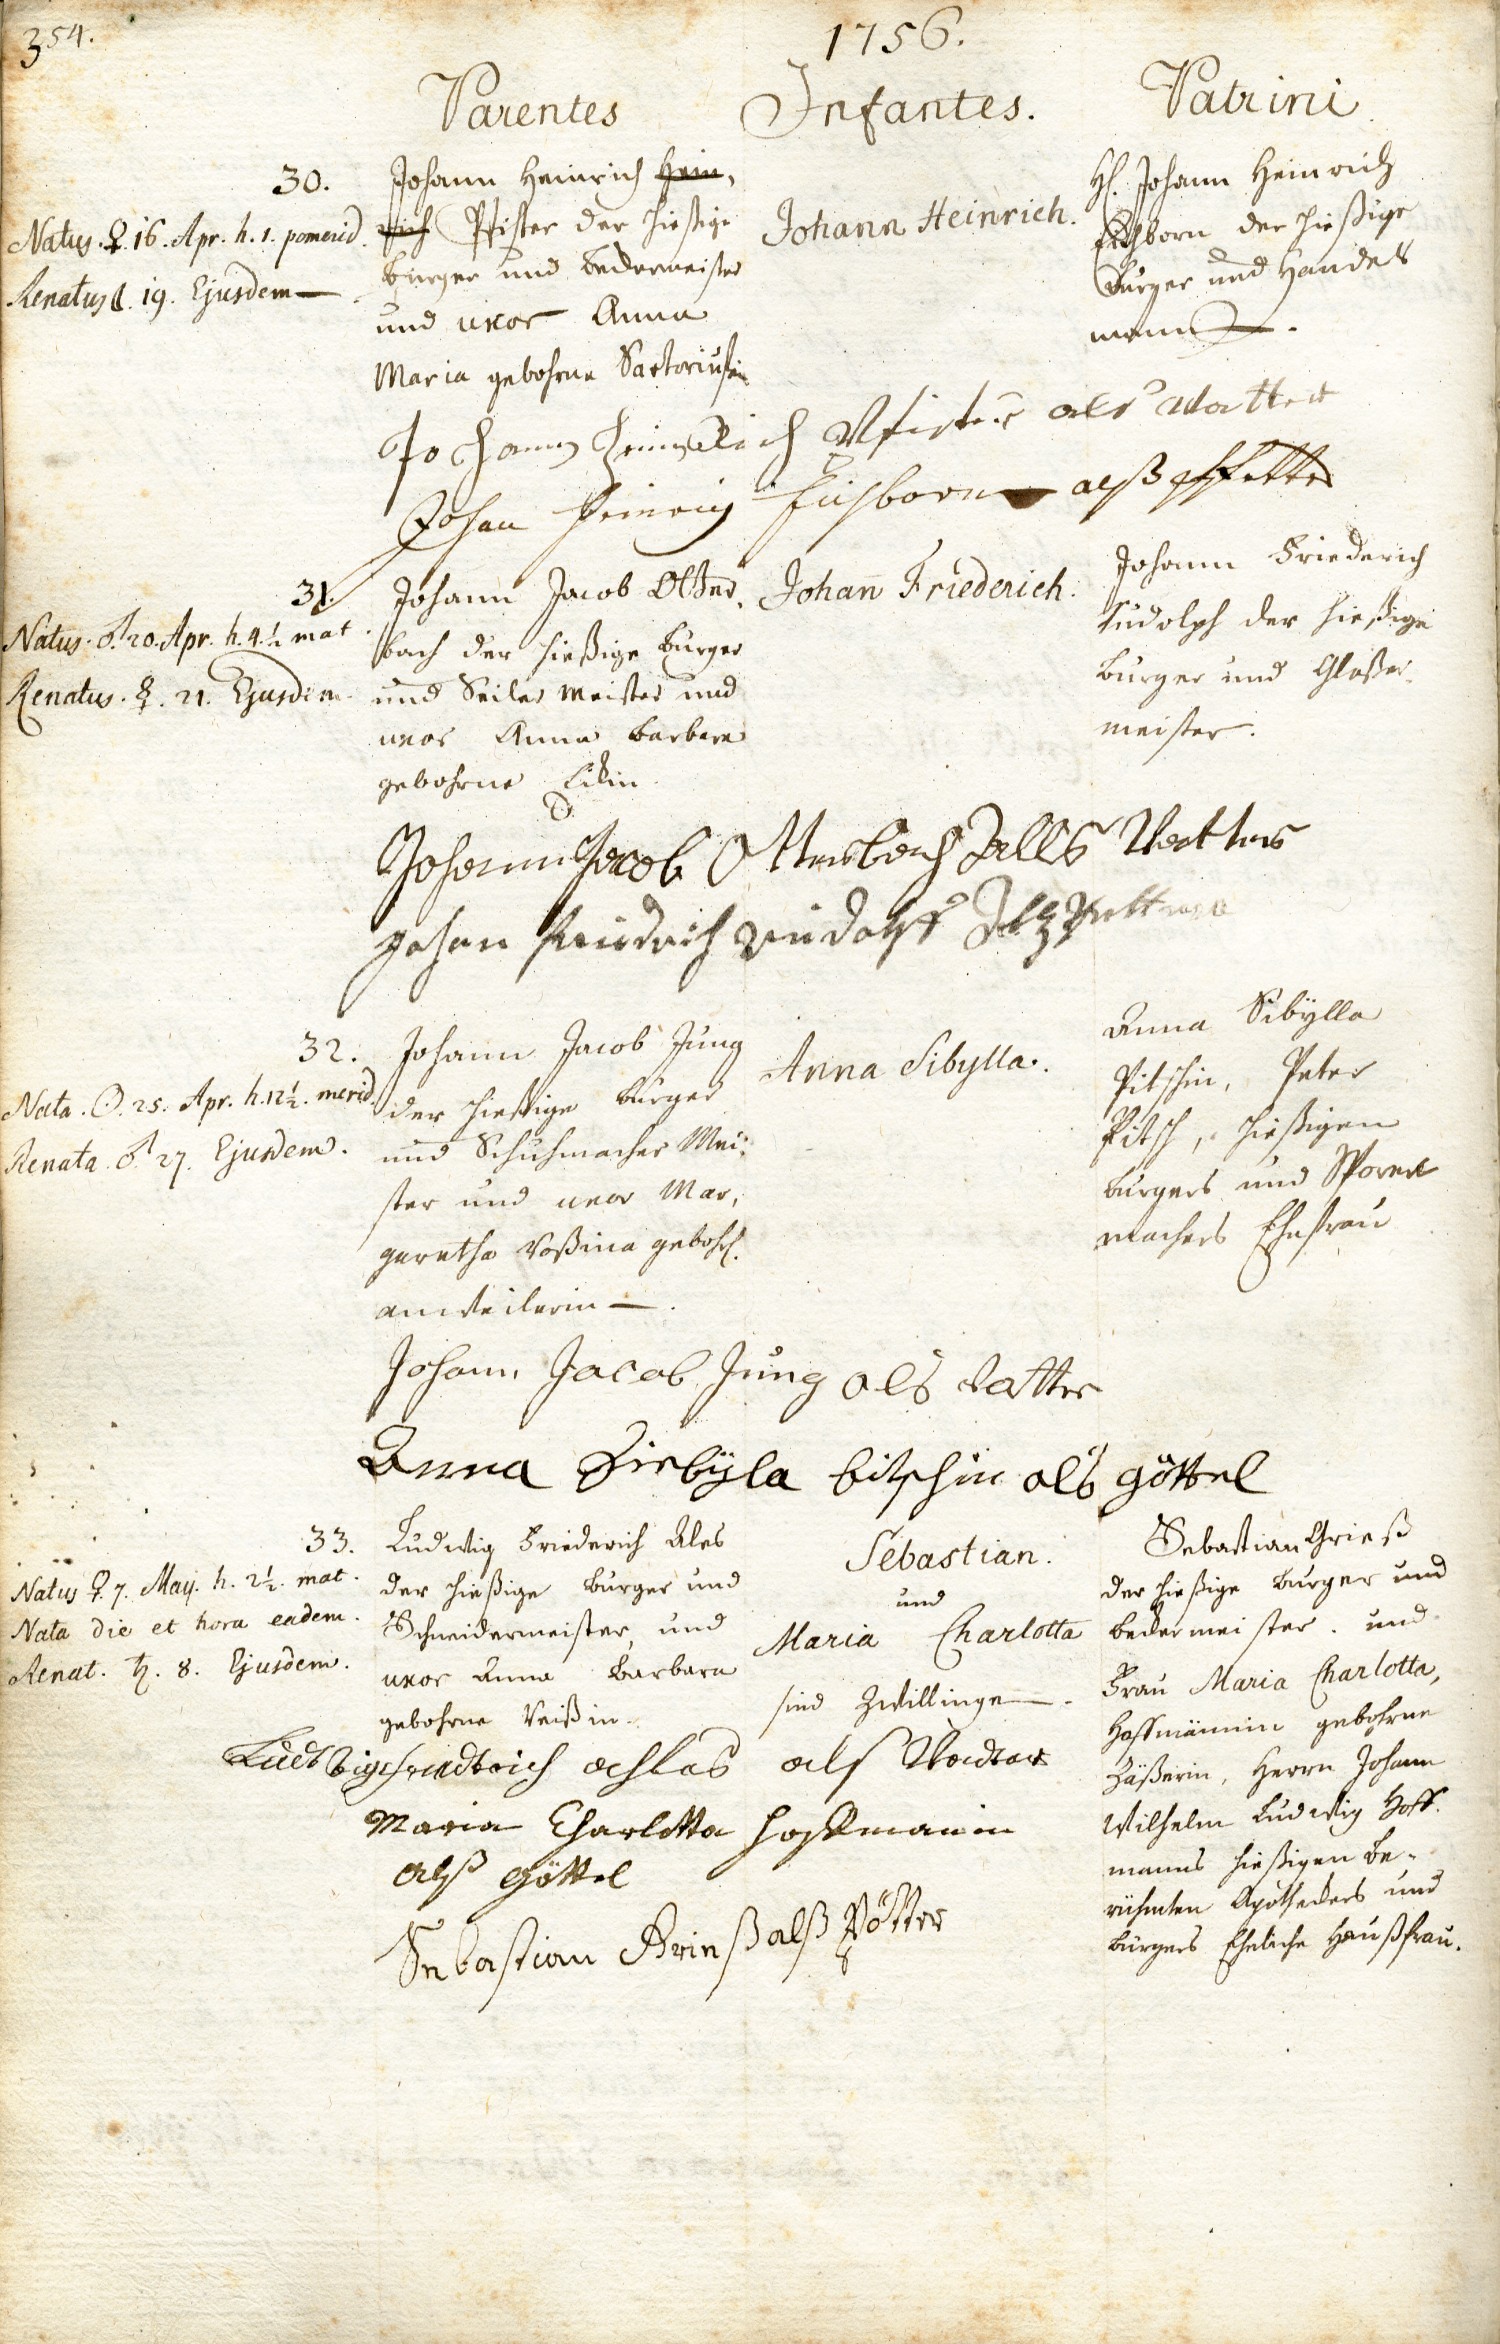 354.
1756.
Parentes Infantes. Patrini
30.
Natus. ♀. 16. Apr. h. 1. pomerid.
Renatus ☾. 19. Ejusdem —
Johann Heinrich Hein,
rich Pfister der hießige
burger und bedermeister
und uxor Anna
Maria gebohrne Sartoriusin
Johann Heinrich.
H. Johann Heinrich
Eichborn der hießige
Burger und Handels
mann.
Johann Heinrich Pfister als Vatter
Johan Heinrich Eichborn alß Pfetter
31.
Natus. ♂. 20. Apr. h. 4. ½ mat.
Renatus. ☿. 21. Ejusdem.
Johann Jacob Otter,
bach der hießige burger
und Seiler meister und
uxor Anna barbara
gebohrne
Johan Friederich.
Johann Friederich
Rudolph der hießige
burger und Glaßer
meister.
Johann Jacob Otterbach Alls Vatter
Johan Friedrich Rudolff Alß
32.
Nata. ☉. 25. Apr. h. 12 ½. merid.
Renata. ♂ 27. Ejusdem.
Johann Jacob Jung
der hießige burger
und Schuhmacher Mei,
ster und uxor Mar,
garetha Roßina gebohr.
anweilerin —.
Anna Sibylla.
Anna Sibÿlla
Pitschin, Peter
Pitsch, hießigen
burgers und Sporer
machers Ehefrau
Johann Jacob Jung als Vatter
Anna Siebÿla bitschin als göttel
33.
Natus ♀. 7. May. h. 2 ½. mat.
Nata die et hora eadem.
Renat. ♄. 8. Ejusdem.
Ludwig Friederich Ales
der hießige burger und
Schneidermeister, und
uxor Anna barbara
gebohrne Weißin.
Sebastian.
und
Maria Charlotta
sind Zwillinge —.
Sebastian Grieß
der hießige burger und
bedermeister. und
Frau Maria Charlotta,
Hoffmännin gebohrne
Häßerin, Herrn Johann
Wilhelm Ludwig Hoff,
manns hießigen be,
rühmten Apotheckers und
burgers Eheliche Haußfrau.
Ludwig friedrich achles als Vadter
Maria Charlotta Hoffmanin
alß göttel
Sebastian Grieß alß Pötter